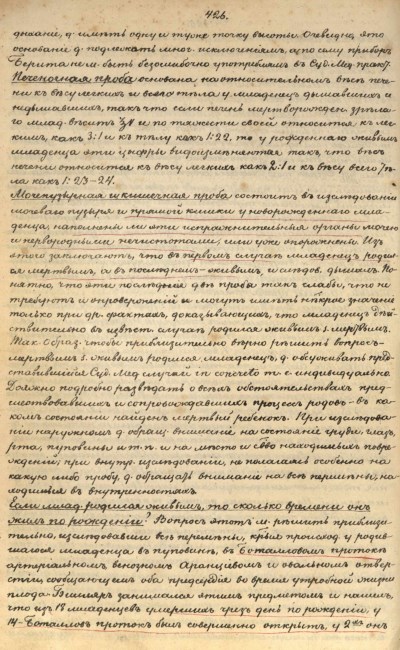 426.
дыханіе, д. имѣть одну и туже точку высоты. Очевидно, это
основаніе д. подлежать мног. исключеніямъ, а по сему приборъ
не м. быть безошибочно употребляемъ въ Суд. Мед. практ.
Печеночная проба основана на относительномъ вѣсѣ пече-
ни къ вѣсу легкихъ и всего тѣла у младенц. дышавшихъ и
недышавшихъ, такъ что если печень мертворожден. зрѣла-
го млад. вѣситъ и по тяжести своей относится къ лег-
кимъ, какъ 3:1 и къ тѣлу какъ 1:22, то у рожденнаго живымъ
младенца эти цифры видоизмѣняются такъ, что вѣсъ
печени относится къ вѣсу легкихъ какъ 2:1 и къ вѣсу всего тѣ-
ла какъ 1:23-24.
Мочепузырная и кишечная проба состоитъ въ изслѣдованіи
мочеваго пузыря и прямой кишки у новорожденнаго мла-
денца, наполнены ли эти испражнительные органы мочею
и первородными нечистотами, или уже опорожнены. Изъ
этого заключаютъ, что въ первомъ случаѣ младенецъ родил-
ся мертвымъ, а въ послѣднемъ - живымъ, и слѣдов. дышалъ. По-
нятно, что эти послѣднія двѣ пробы такъ слабы, что не
требуютъ и опроверженій и могутъ имѣть нѣкрое значеніе
только при др. фактахъ, доказывающихъ, что младенецъ дѣй-
ствительно въ извѣст. случаѣ родился живымъ s. мертвымъ.
Так. образ. чтобы приблизительно вѣрно рѣшить вопросъ -
мертвымъ s. живымъ родился младенецъ, д. обсуживать пред-
ставившійся Суд. Мед. случай in concreto т-е индивидуально.
Должно подробно развѣдать о всѣхъ обстоятельствахъ пред-
шествовавшихъ и сопровождавшихъ процессъ родовъ - въ ка-
комъ состояніи найденъ мертвый ребенокъ. При изслѣдова-
ніи наружномъ д. обращ. вниманіе на состояніе груди, глазъ,
рта, пуповины и т.п. и на мѣсто и св-во находимыхъ повре-
жденій; при внутр. изслѣдованіи, не полагаясь особенно на
какую либо пробу, д. обращать вниманіе на всѣ перемѣны, на-
ходимыя въ внутренностяхъ.
Если млад. родился живымъ, то сколько времени онъ
жилъ по рожденіи? Вопросъ этотъ м. рѣшить приблизи-
тельно, изслѣдовавши всѣ перемѣны, крыя происход. у родив-
шагося младенца въ пуповинѣ, въ Боталловомъ протокѣ
артеріальномъ, венозномъ Аранціевомъ и овальномъ отвер-
стіи, сообщающемъ оба предсердія во время утробной жизни
плода. занимался этимъ предметомъ и нашелъ,
что изъ 18 младенцевъ умершихъ чрезъ день по рожденіи, у
14 - Боталловъ протокъ былъ совершенно открытъ, у 2хъ онъ